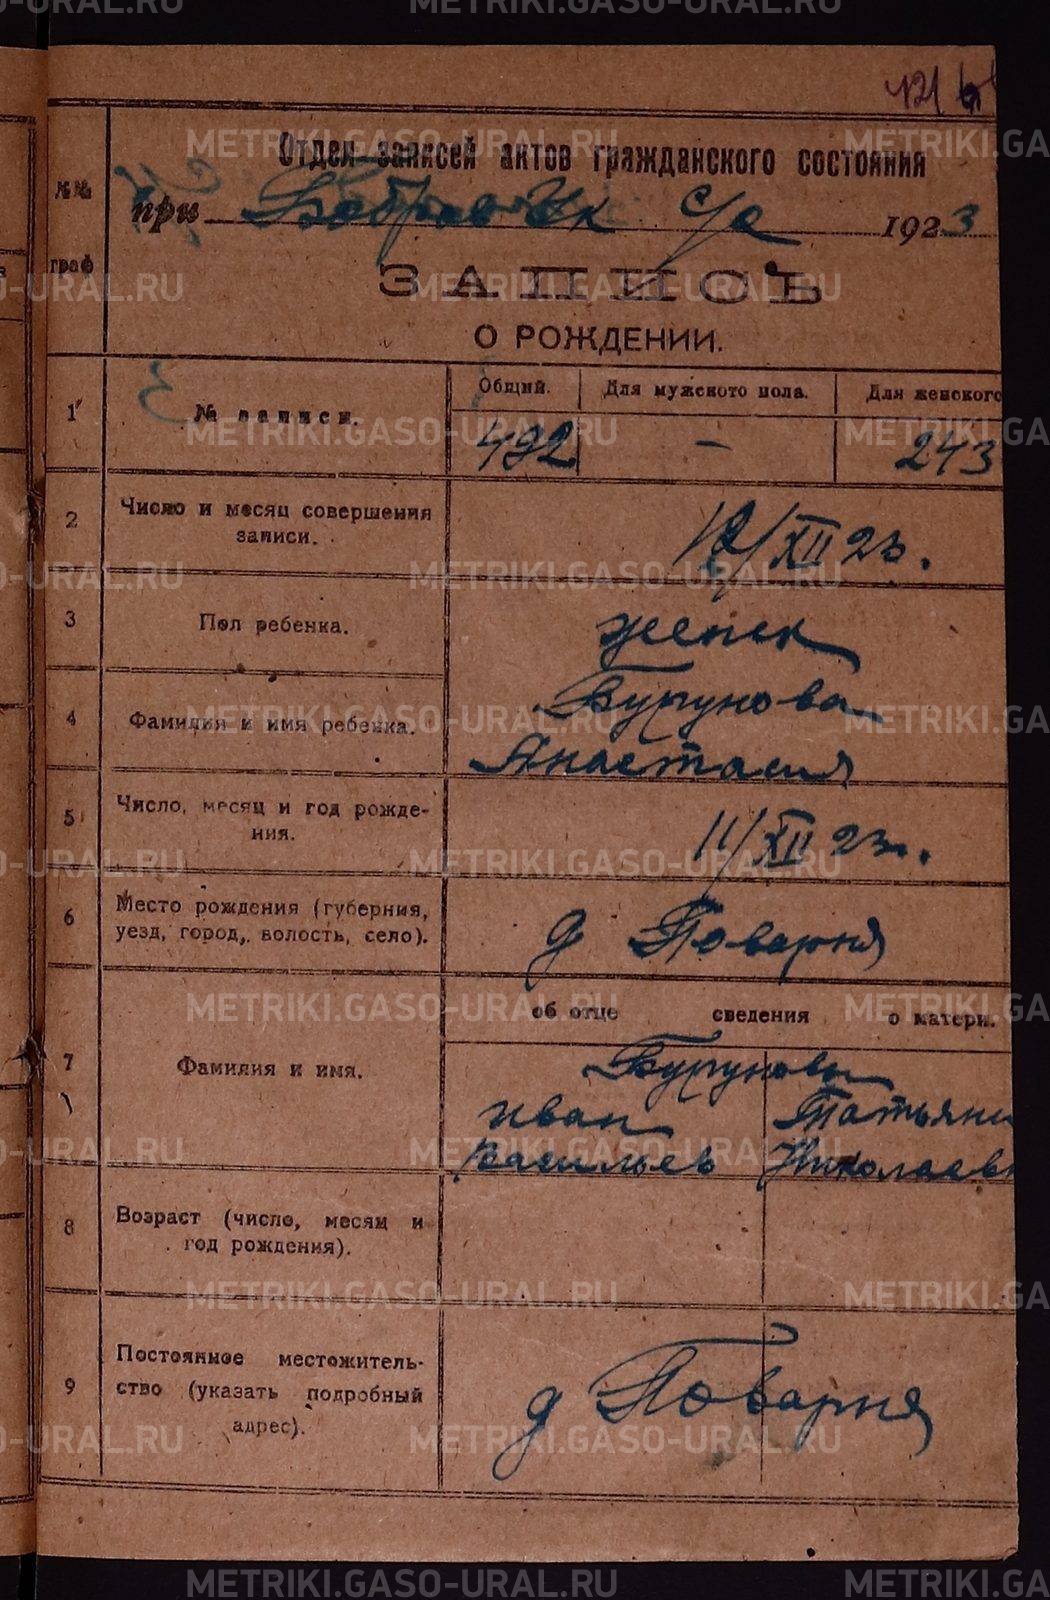 Отдел записей актов гражданского состояния
при Бобровск с/с 1923
ЗАПИСЬ
О РОЖДЕНИИ.
№№ граф
1 № записи. Общий. Для мужского пола. Для женского
492 — 243
2 Число и месяц совершения
записи.
12/XII 23.
3 Пол ребенка. женск
4 Фамилия и имя ребенка. Бурунова
Анастасия
5 Число, месяц и год рожде-
ния.
11/XII 23г.
6 Место рождения (губерния,
уезд, город, волость, село).
д Поварня
об отце сведения о матери.
7 Фамилия и имя.
Буруновы
Иван Татьяна
Васильев Николаевн
8 Возраст (число, месяц и
год рождения).
9 Постоянное местожитель-
ство (указать подробный
адрес).
д Поварня
METRIKI.GASO-URAL.RU